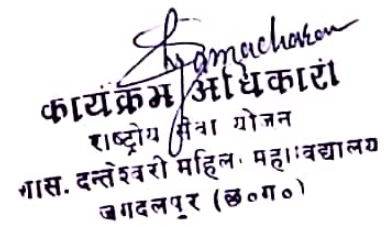 कार्यक्रम अधिकारी
राष्ट्रीय सेवा योजन
शास. दन्तेश्वरी महिला महाविद्यालय
जगदलपुर (छ०ग०)